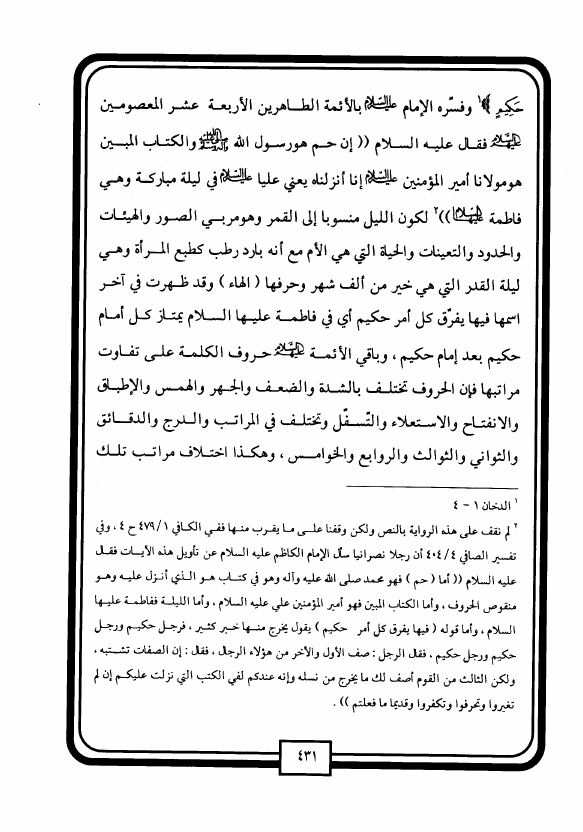 حَكِيمٍ ﴾١ وفسّره الإمام عليه السلام بالأئمة الطاهرين الأربعة عشر المعصومين
عليهم السلام فقال عليه السلام (( إن حم هورسول الله صلى الله عليه وآله والكتاب المبين
هومولانا أمير المؤمنين عليه السلام إنا أنزلناه يعني عليا عليه السلام في ليلة مباركة وهي
فاطمة عليها السلام ))٢ لكون الليل منسوبا إلى القمر وهومربي الصور والهيئات
والحدود والتعينات والحياة التي هي الأم مع أنه بارد رطب كطبع المرأة وهي
ليلة القدر التي هي خير من ألف شهر وحرفها ( الهاء ) وقد ظهرت في آخر
اسمها فيها يفرّق كل أمر حكيم أي في فاطمة عليها السلام يمتاز كل أمام
حكيم بعد إمام حكيم ، وباقي الأئمة عليهم السلام حروف الكلمة على تفاوت
مراتبها فإن الحروف تختلف بالشدة والضعف والجهر والهمس والإطباق
والانفتاح والاستعلاء والتّسفّل وتختلف في المراتب والدرج والدقائق
والثواني والثوالث والروابع والخوامس ، وهكذا اختلاف مراتب تلك
١ الدخان ١ – ٤
٢ لم نقف على هذه الرواية بالنص ولكن وقفنا على ما يقرب منها ففي الكافي ٤٧٩/١ ح ٤ ، وفي
تفسير الصافي ٤٠٤/٤ أن رجلا نصرانيا سأل الإمام الكاظم عليه السلام عن تأويل هذه الآيات فقال
عليه السلام (( أما ( حم ) فهو محمد صلى الله عليه وآله وهو في كتاب هو الذي أنزل عليه وهو
منقوص الحروف ، وأما الكتاب المبين فهو أمير المؤمنين علي عليه السلام ، وأما الليلة ففاطمة عليها
السلام ، وأما قوله ( فيها يفرق كل أمر حكيم ) يقول يخرج منها خير كثير ، فرجل حكيم ورجل
حكيم ورجل حكيم . فقال الرجل : صف الأول والآخر من هؤلاء الرجال ، فقال : إن الصفات تشتبه ،
ولكن الثالث من القوم أصف لك ما يخرج من نسله وإنه عندكم لفي الكتب التي نزلت عليكم إن لم
تغيروا وتحرفوا وتكفروا وقديما ما فعلتم )) .
٤٣١